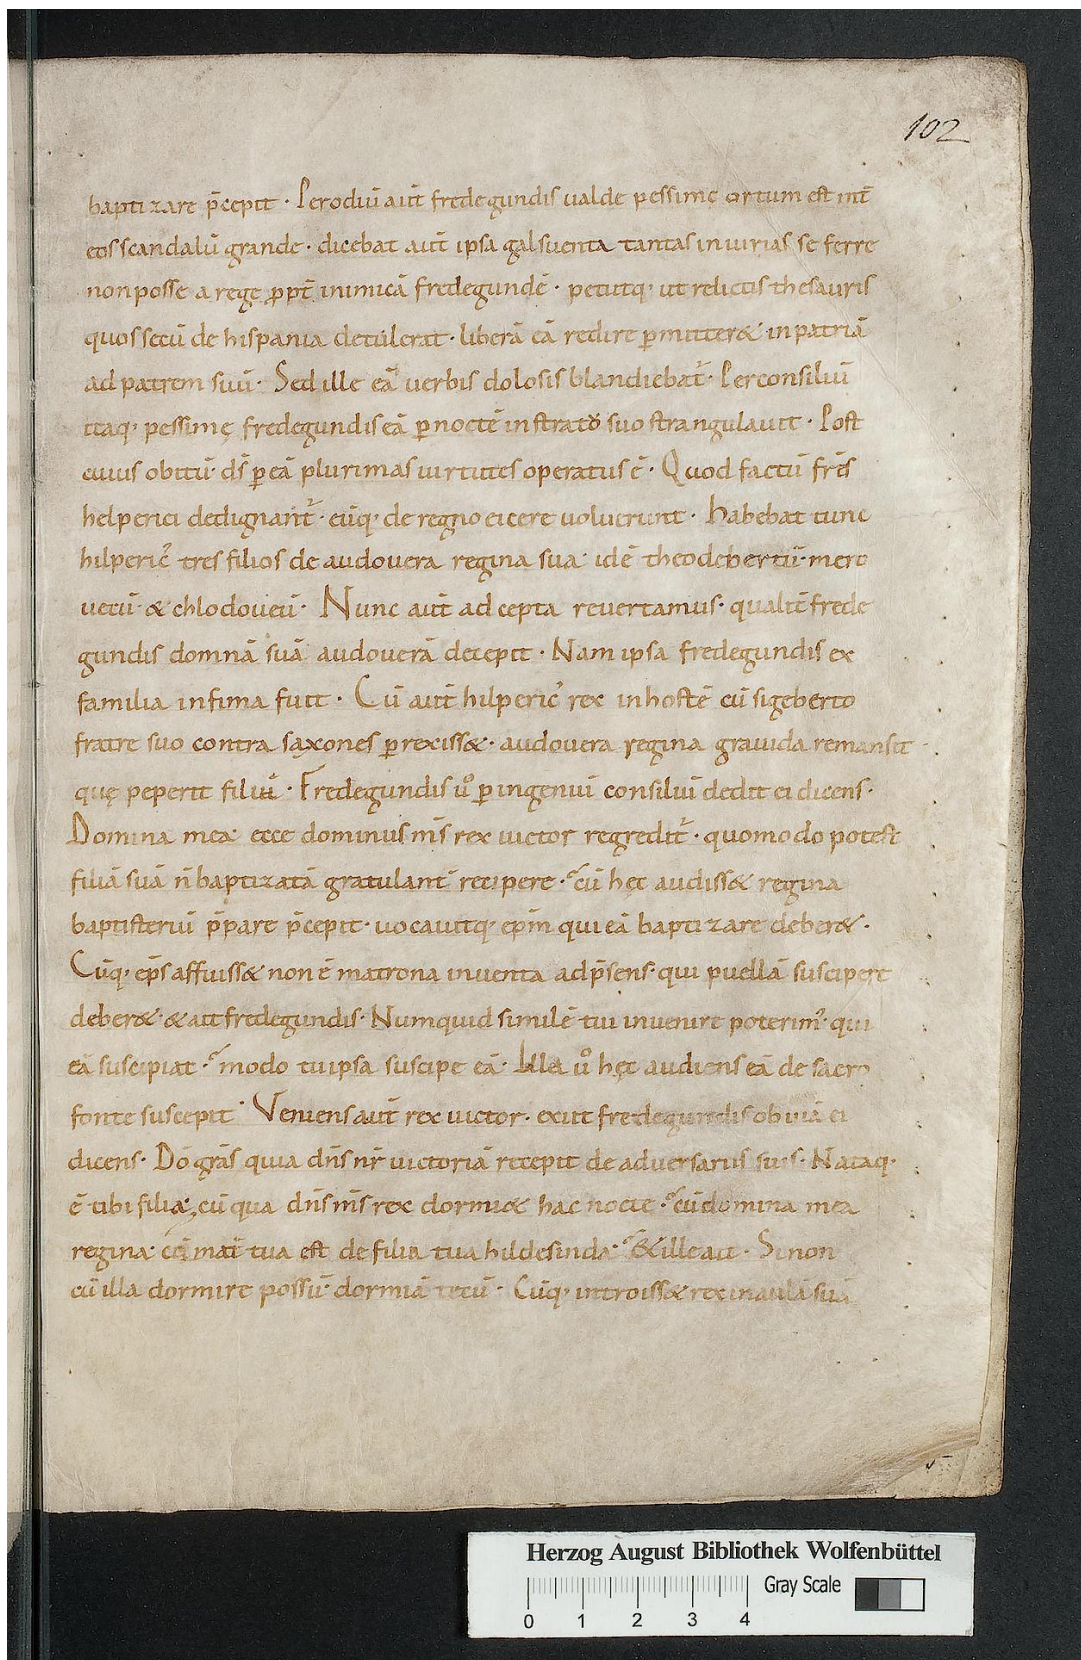 102
baptizare p̄cepit · Perodiū aūt fredegundis ualde pessimę ortum est int̄
eos scandalū grande · dicebat aūt ipsa galsuenta tantas iniurias se ferre
non posse a rege ꝓpt̄ inimicā fredegundē · petiitq· ut relictis thesauris
quos secū de hispania detulerat · liberā eā redire ꝑmitter& in patriā
ad patrem suū · Sed ille eā uerbis dolosis blandiebat᷒ · Per consiliū
itaq· pessimę fredegundis eā ꝑ noctē in strato suo strangulauit · Post
cuius obitū d̄s ꝑ eā plurimas uirtutes operatus ē · Quod factū fr̄is
helperici dedignant᷒ · eūq· de regno eicere uoluerunt · Habebat tunc
hilperic᾿ tres filios de audouera regina sua · idē theodebertū · mero
uecū · & chlodoueū · Nunc aūt ad cepta reuertamus · qualit̄ frede
gundis domnā suā audouerā decepit · Nam ipsa fredegundis ex
familia infima fuit · Cū aūt hilperic᾿ rex in hostē cū sigeberto
fratre suo contra saxones ꝑrexiss& · audouera regina grauida remansit ·
quę peperit filiā · Fredegundis ů ꝑ ingeniū consiliū dedit ei dicens ·
Domina mea ecce dominus m̄s rex uictor regredit᷒ · quomodo potest
filiā suā n̄ baptizatā gratulant̄ recipere · cū hęc audiss& regina
baptisteriū p̄pare p̄cepit · uocauitq· ep̄m qui eā baptizare deber& ·
Cūq· ep̄s affuiss& non ē matrona inuenta ad p̄sens · qui puellā suscipere
deber& · & ait fredegundis · Numquid similē tui inuenire poterim᾿ qui
eā suscipiat · modo tu ipsa suscipe eā · Illa ů hęc audiens eā de sacro
fonte suscepit · Veniens aūt rex uictor · exiit fredegundis obuiā ei
dicens · Dō grās quia dn̄s nr̄ uictoriā recepit de aduersariis suis · Nataq·
ē tibi filia, cū qua dn̄s m̄s rex dormi& hac nocte · cū domina mea
regina · mat̄ tua est de filia tua hildesinda · & ille ait · Si non
cū illa dormire possū · dormiā tecū · Cūq· introiss& rex in aulā suā
Herzog August Bibliothek Wolfenbüttel
Gray Scale
0 1 2 3 4